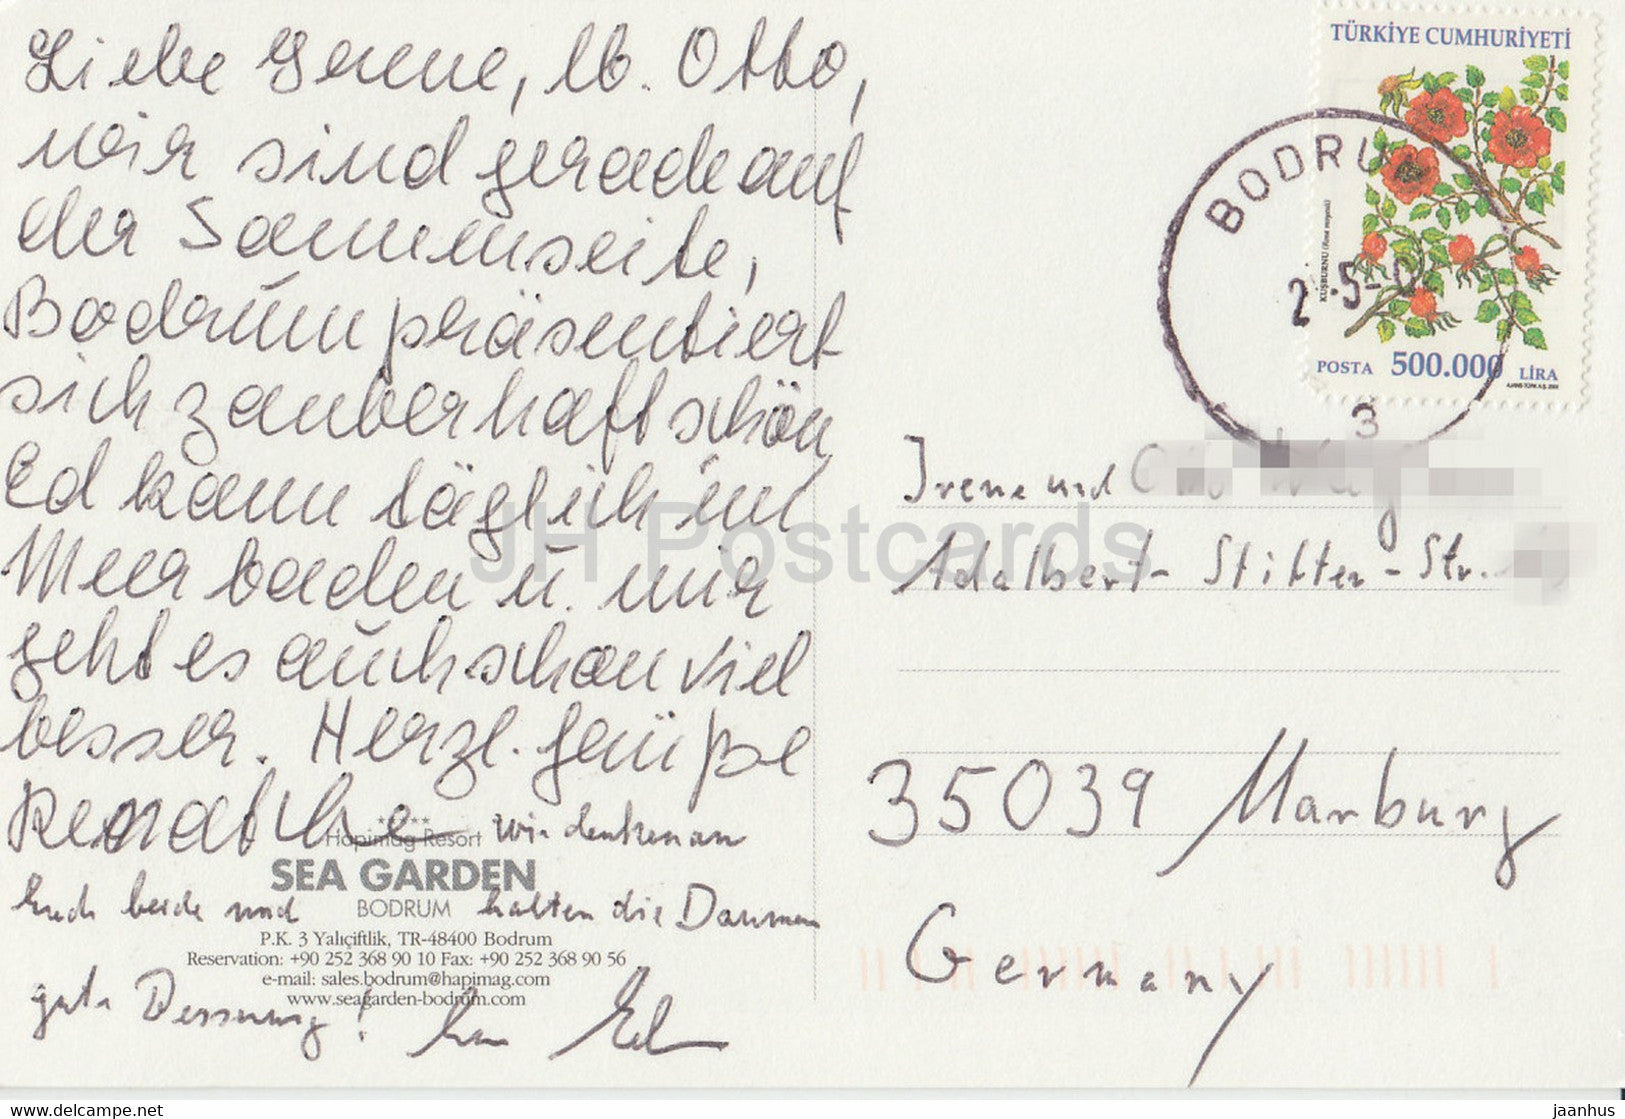 Liebe Irene, lb. Otto,
wir sind gerade auf
der Sonnenseite,
Bodrum präsentiert
sich zauberhaft schön
Ed kann täglich im
Meer baden u. mir
geht es auch schon viel
besser. Herzl. Grüße
Renathe
wir denken an
Euch beide und halten die Daumen
gute Besserung! Euer Ed
★★★★★
Hapimag Resort
SEA GARDEN
BODRUM
P.K. 3 Yalıçiftlik, TR-48400 Bodrum
Reservation: +90 252 368 90 10 Fax: +90 252 368 90 56
e-mail: sales.bodrum@hapimag.com
www.seagarden-bodrum.com
TÜRKİYE CUMHURİYETİ
KUŞBURNU
POSTA 500.000 LİRA
BODRUM
3
Irene und
Adalbert-Stifter-Str.
35039 Marburg
Germany
JH Postcards
www.delcampe.net
jaanhus